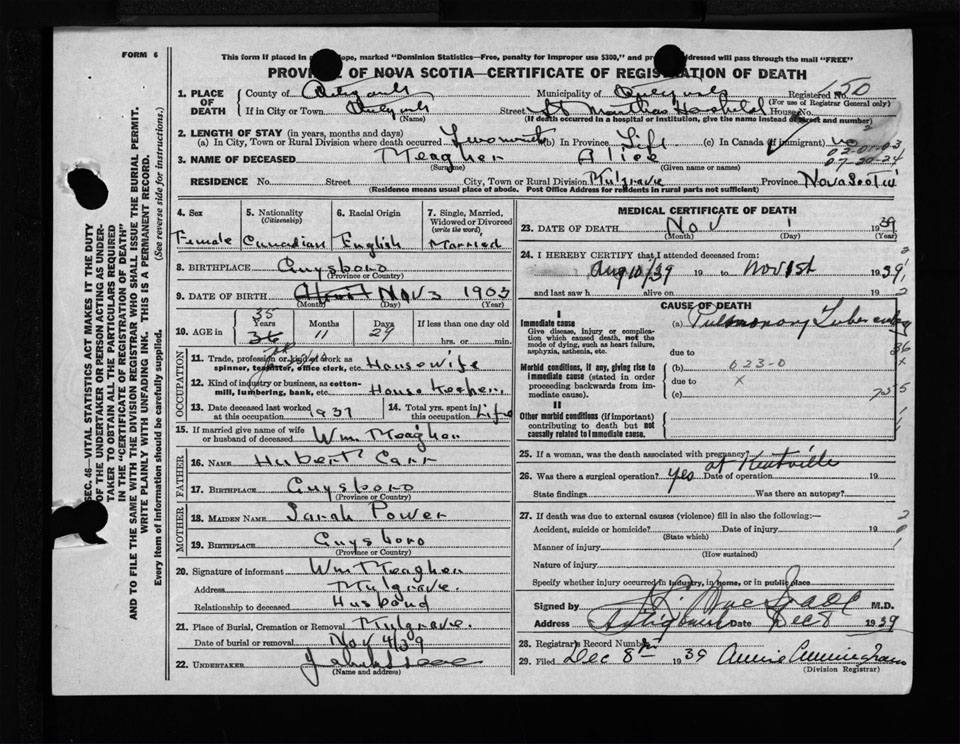 FORM 6
This form if placed in envelope, marked "Dominion Statistics—Free, penalty for improper use $300," and properly addressed will pass through the mail "FREE"
PROVINCE OF NOVA SCOTIA—CERTIFICATE OF REGISTRATION OF DEATH
1. PLACE OF DEATH
County of Antigonish Municipality of Antigonish Registered No. 150
(For use of Registrar General only)
If in City or Town Antigonish Street St Marthas Hospital House No.
(Name) (If death occurred in a hospital or institution, give the name instead of street and number)
2. LENGTH OF STAY (in years, months and days)
(a) In City, Town or Rural Division where death occurred Two months (b) In Province Life (c) In Canada (if immigrant)
02-01-03
07-20-24
3. NAME OF DECEASED Meagher Alice
(Surname) (Given name or names)
RESIDENCE No. Street City, Town or Rural Division Mulgrave Province Nova Scotia
(Residence means usual place of abode. Post Office Address for residents in rural parts not sufficient)
4. Sex Female
5. Nationality (Citizenship) Canadian
6. Racial Origin English
7. Single, Married, Widowed or Divorced (write the word) Married
8. BIRTHPLACE Guysboro
(Province or Country)
9. DATE OF BIRTH Nov 3 1903
(Month) (Day) (Year)
10. AGE in 35 36 Years 11 Months 29 Days If less than one day old hrs. or min.
OCCUPATION
11. Trade, profession or kind of work as spinner, teamster, office clerk, etc. Housewife
12. Kind of industry or business, as cotton-mill, lumbering, bank, etc. House Keeper
13. Date deceased last worked at this occupation 1937
14. Total yrs. spent in this occupation Life
15. If married give name of wife or husband of deceased Wm Meagher
FATHER
16. NAME Hubert Carr
17. BIRTHPLACE Guysboro
(Province or Country)
MOTHER
18. MAIDEN NAME Sarah Power
19. BIRTHPLACE Guysboro
(Province or Country)
20. Signature of informant Wm Meagher
Address Mulgrave
Relationship to deceased Husband
21. Place of Burial, Cremation or Removal Mulgrave
Date of burial or removal Nov 4/39
22. UNDERTAKER
(Name and address)
MEDICAL CERTIFICATE OF DEATH
23. DATE OF DEATH Nov 1 1939
(Month) (Day) (Year)
24. I HEREBY CERTIFY that I attended deceased from:
Aug 10/39 19 to Nov 1st 1939
and last saw h alive on 19
CAUSE OF DEATH
I
Immediate cause
Give disease, injury or complication which caused death, not the mode of dying, such as heart failure, asphyxia, asthenia, etc.
(a) Pulmonary Tuberculosis
due to
Morbid conditions, if any, giving rise to immediate cause (stated in order proceeding backwards from immediate cause).
(b) 623-0
due to x
(c)
II
Other morbid conditions (if important) contributing to death but not causally related to immediate cause.
25. If a woman, was the death associated with pregnancy?
26. Was there a surgical operation? yes at Kentville Date of operation 19
State findings Was there an autopsy?
27. If death was due to external causes (violence) fill in also the following:—
Accident, suicide or homicide? Date of injury 19
(State which)
Manner of injury
(How sustained)
Nature of injury
Specify whether injury occurred in industry, in home, or in public place
Signed by M.D.
Address Antigonish Date Dec 8 1939
28. Registrar's Record Number
29. Filed Dec 8 1939 Annie Cunningham
(Division Registrar)
SEC. 46—VITAL STATISTICS ACT MAKES IT THE DUTY
OF THE UNDERTAKER OR PERSON ACTING AS UNDER-
TAKER TO OBTAIN ALL THE PARTICULARS REQUIRED
IN THE "CERTIFICATE OF REGISTRATION OF DEATH"
AND TO FILE THE SAME WITH THE DIVISION REGISTRAR WHO SHALL ISSUE THE BURIAL PERMIT.
WRITE PLAINLY WITH UNFADING INK. THIS IS A PERMANENT RECORD.
Every item of information should be carefully supplied. (See reverse side for instructions.)